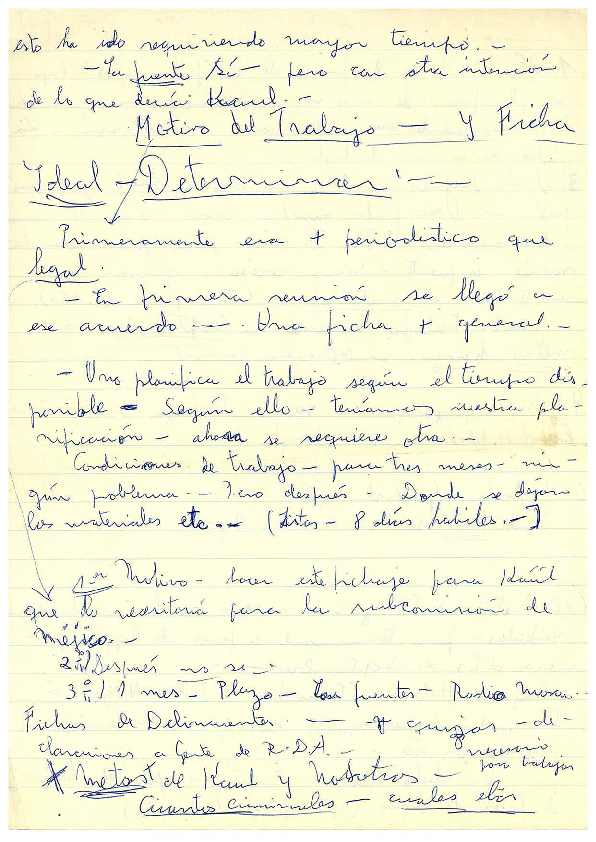 esto ha ido requiriendo mayor tiempo. -
- La fuente Sí - pero con otra intención
de lo que decía Kaul. -
Motivo del Trabajo - Y Ficha
Ideal - Determinar -
Primeramente era + periodístico que
legal.
- En primera reunión se llegó a
ese acuerdo --- . Una ficha + general. -
- Uno planifica el trabajo según el tiempo dis-
ponible - Según ello - teníamos nuestra pla-
nificación - ahora se requiere otra. -
Condiciones de trabajo - para tres meses - nin-
gún problema. - Pero después - Donde se dejan
los materiales etc. - (Listas - 8 días hábiles. -)
1er Motivo - hacer este fichaje para Kaúl
que lo necesitaría para la subcomisión de
Méjico. -
2º/ Después no se -.
3º/ 1 mes - Plazo - Las fuentes - Radio Moscú. -
Fichas de Delincuentes. - + quizás - de-
claraciones a Gente de R.D.A. -
necesario
para trabajar
* metas de Kaul y Nosotros -
Cuantos criminales - cuales etc